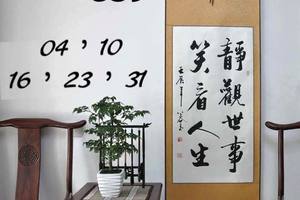 04 , 10
16 , 23 , 31
靜觀世事
笑看人生